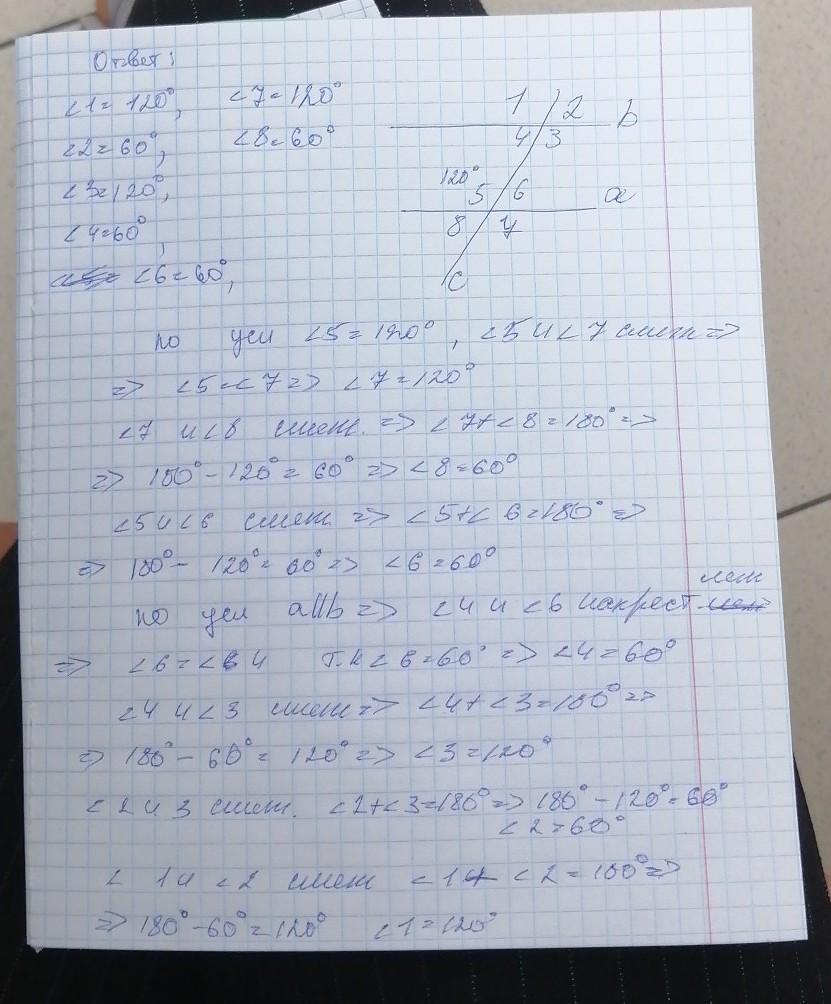 Ответ:
∠1=120°, ∠7=120°
∠2=60°, ∠8=60°
∠3=120°,
∠4=60°,
∠6=60°,
1 2 b
4 3
120°
5 6 a
8 7
c
по усл ∠5=120°, ∠5 и ∠7 смеж =>
=> ∠5=∠7 => ∠7=120°
∠7 и ∠8 смеж. => ∠7+∠8=180° =>
=> 180°-120°=60° => ∠8=60°
∠5 и ∠6 смеж => ∠5+∠6=180° =>
=> 180°-120°=60° => ∠6=60°
по усл a||b => ∠4 и ∠6 накрест леж
=> ∠6=∠4 т.к ∠6=60° => ∠4=60°
∠4 и ∠3 смеж => ∠4+∠3=180° =>
=> 180°-60°=120° => ∠3=120°
∠2 и 3 смеж. ∠2+∠3=180° => 180°-120°=60°
∠2=60°
∠1 и ∠2 смеж ∠1+∠2=180° =>
=> 180°-60°=120° ∠1=120°